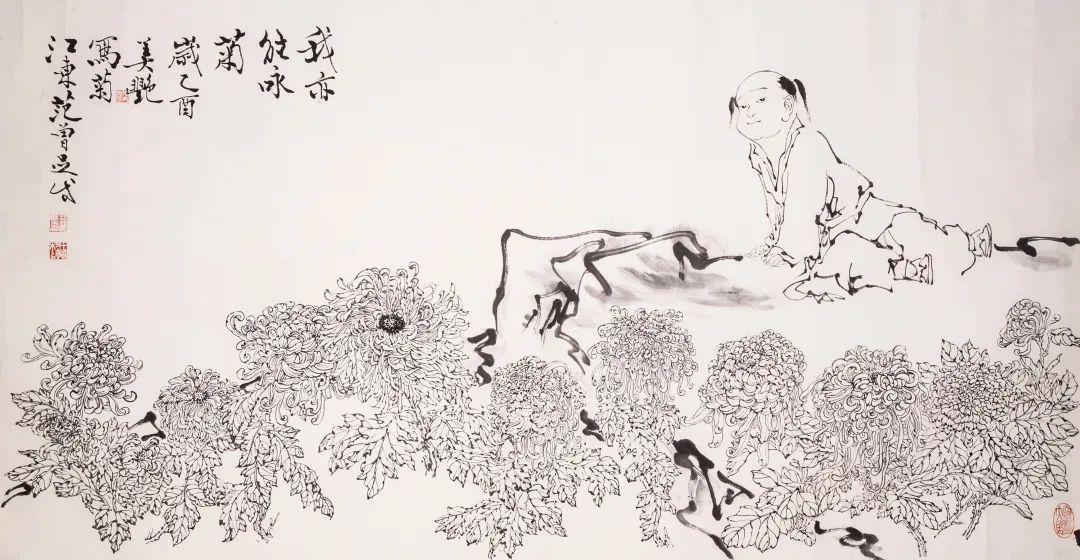 我亦
能咏
菊
歲乙酉
美艷
寫菊
江東范曾足成